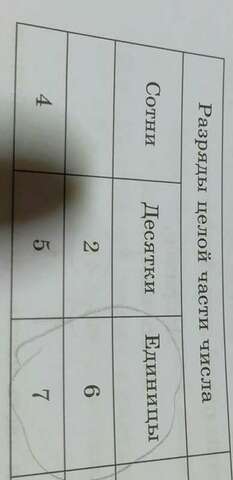 Разряды целой части числа
Сотни Десятки Единицы
2 6
4 5 7